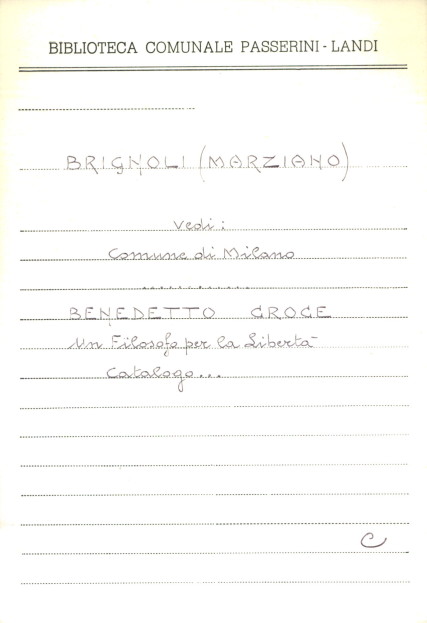 BIBLIOTECA COMUNALE PASSERINI - LANDI
BRIGNOLI (MARZIANO)
Vedi:
Comune di Milano
...........
BENEDETTO CROCE
Un Filosofo per la Libertà
Catalogo...
C